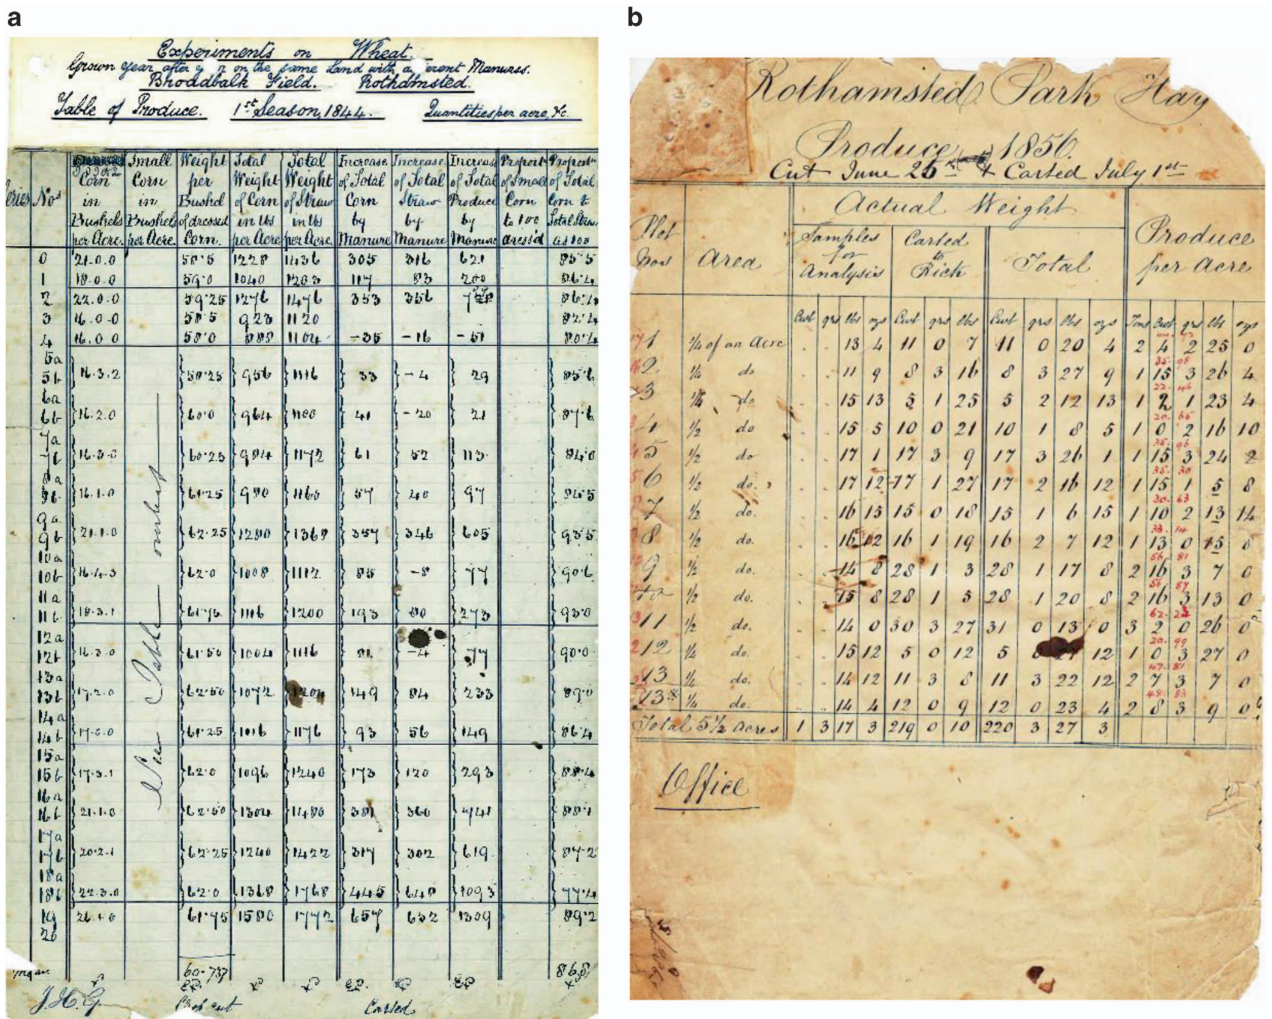 a
Experiments on Wheat.
Grown year after y r on the same Land with a erent Manures.
Broadbalk Field. Rothamsted.
Table of Produce. 1st Season, 1844. Quantities per acre, &c.
eries Nos Corn in Bushels per Acre. Small Corn in Bushels per Acre. Weight per Bushel of dressed Corn. Total Weight of Corn in lbs per Acre Total Weight of Straw in lbs per Acre Increase of Total Corn by Manure Increase of Total Straw by Manure Increase of Total Produce by Manure Proport of Small Corn to 100 dress'd Proport of Total Corn to Total Straw as 100
0 21.0.0 58.5 1228 1436 305 316 621 85.5
1 18.0.0 59.0 1040 1203 117 83 200 86.4
2 22.0.0 59.25 1276 1476 353 356
3 16.0.0 58.5 923 1120 82.4
4 16.0.0 58.0 888 1104 -35 -16 -51 80.4
5a
5b 16.3.2 59.25 956 1116 33 -4 29 85.6
6a
6b 16.2.0 60.0 964 1100 41 -20 21 87.6
7a
7b 16.3.0 60.25 984 1172 61 52 113 84.0
8a
8b 16.1.0 61.25 980 1160 57 40 97 84.5
9a
9b 21.1.0 62.25 1280 1368 357 346 605 93.5
10a
10b 62.0 1008 1112 85 -8 77 90.6
11a
11b 18.3.1 61.75 1116 1200 193 80 273 93.0
12a
12b 16.3.0 61.50 1004 1116 81 -4 77 90.0
13a
13b 17.2.0 62.50 1072 1204 149 84 233 89.0
14a
14b 61.25 1016 1176 93 56 149 86.4
15a
15b 17.3.1 62.0 1096 1240 173 120 293 88.4
16a
16b 21.1.0 62.50 1304 1480 381 360 741 88.1
17a
17b 20.2.1 62.25 1240 1422 317 302 619 87.2
18a
18b 22.3.0 62.0 1368 1768 445 648 1093 77.4
19 61.75 1580 1772 657 652 1309 89.2
20
Mean 60.737 86.8
See Table
J.H.G. Carted
b
Rothamsted Park Hay
Produce 1856.
Cut June 25th & Carted July 1st
Plot Nos Area Actual Weight Produce per Acre
Samples for Analysis Carted to Rick Total
Cwt qrs lbs ozs Cwt qrs lbs Cwt qrs lbs ozs Tons Cwt qrs lbs ozs
1 ¼ of an Acre 13 4 11 0 7 11 0 20 4 2 4 2 25 0
2 ¼ do 11 9 8 3 16 8 3 27 9 1 15 3 26 4
3 ¼ do 15 13 5 1 25 5 2 12 13 1 2 1 23 4
4 ½ do 15 5 10 0 21 10 1 8 5 1 0 2 16 10
5 ½ do 17 1 17 3 9 17 3 26 1 1 15 3 24 2
6 ½ do. 17 12 17 1 27 17 2 16 12 1 15 1 5 8
7 ½ do. 16 15 15 0 18 15 1 6 15 1 10 2 13 14
8 ½ do. 16 12 16 1 19 16 2 7 12 1 13 0 15 8
9 ½ do. 14 8 28 1 3 28 1 17 8 2 16 3 7 0
½ do. 15 8 28 1 5 28 1 20 8 2 16 3 13 0
11 ½ do. 14 0 30 3 27 31 0 13 0 3 2 0 26 0
12 ¼ do. 15 12 5 0 12 5 0 27 12 1 0 3 27 0
13 ¼ do. 14 12 11 3 8 11 3 22 12 2 7 3 7 0
13* ¼ do. 14 4 12 0 9 12 0 23 4 2 8 3 9 0
Total 5½ acres 1 3 17 3 219 0 10 220 3 27 3
Office